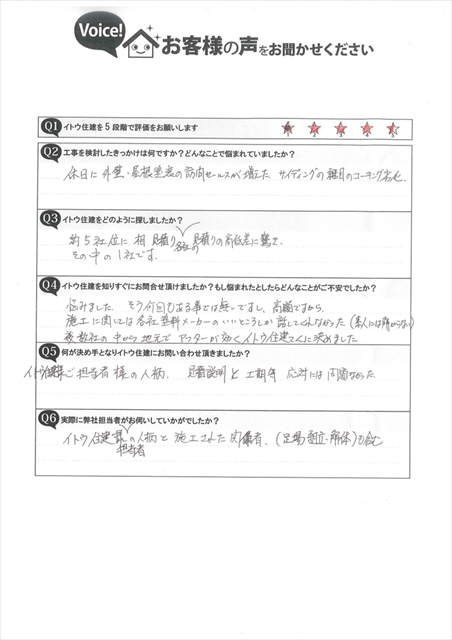 Voice!
お客様の声をお聞かせください
Q1 イトウ住建を5段階で評価をお願いします
1 2 3 4 5
Q2 工事を検討したきっかけは何ですか?どんなことで悩まれていましたか?
休日に外壁・屋根塗装の訪問セールスが増えた サイディングの継目のコーキング劣化
Q3 イトウ住建をどのように探しましたか?
約5社位に相見積り 各社の見積りの高低差に驚き、
その中の1社です。
Q4 イトウ住建を知りすぐにお問合せ頂けましたか?もし悩まれたとしたらどんなことがご不安でしたか?
悩みました そう何回もある事では無いですし、高額ですから。
施工に関しては各社塗料メーカーのいいところしか話してくれなかった(素人には解からない)
複数社の中から地元で アフターが効くイトウ住建さんに決めました
Q5 何が決め手となりイトウ住建にお問い合わせ頂きましたか?
イトウ住建ご担当者様の人柄、見積説明と工期等 応対には問題なかった
Q6 実際に弊社担当者がお伺いしていかがでしたか?
イトウ住建様の人柄と施工された関係者、(足場組立・解体)も含む
担当者